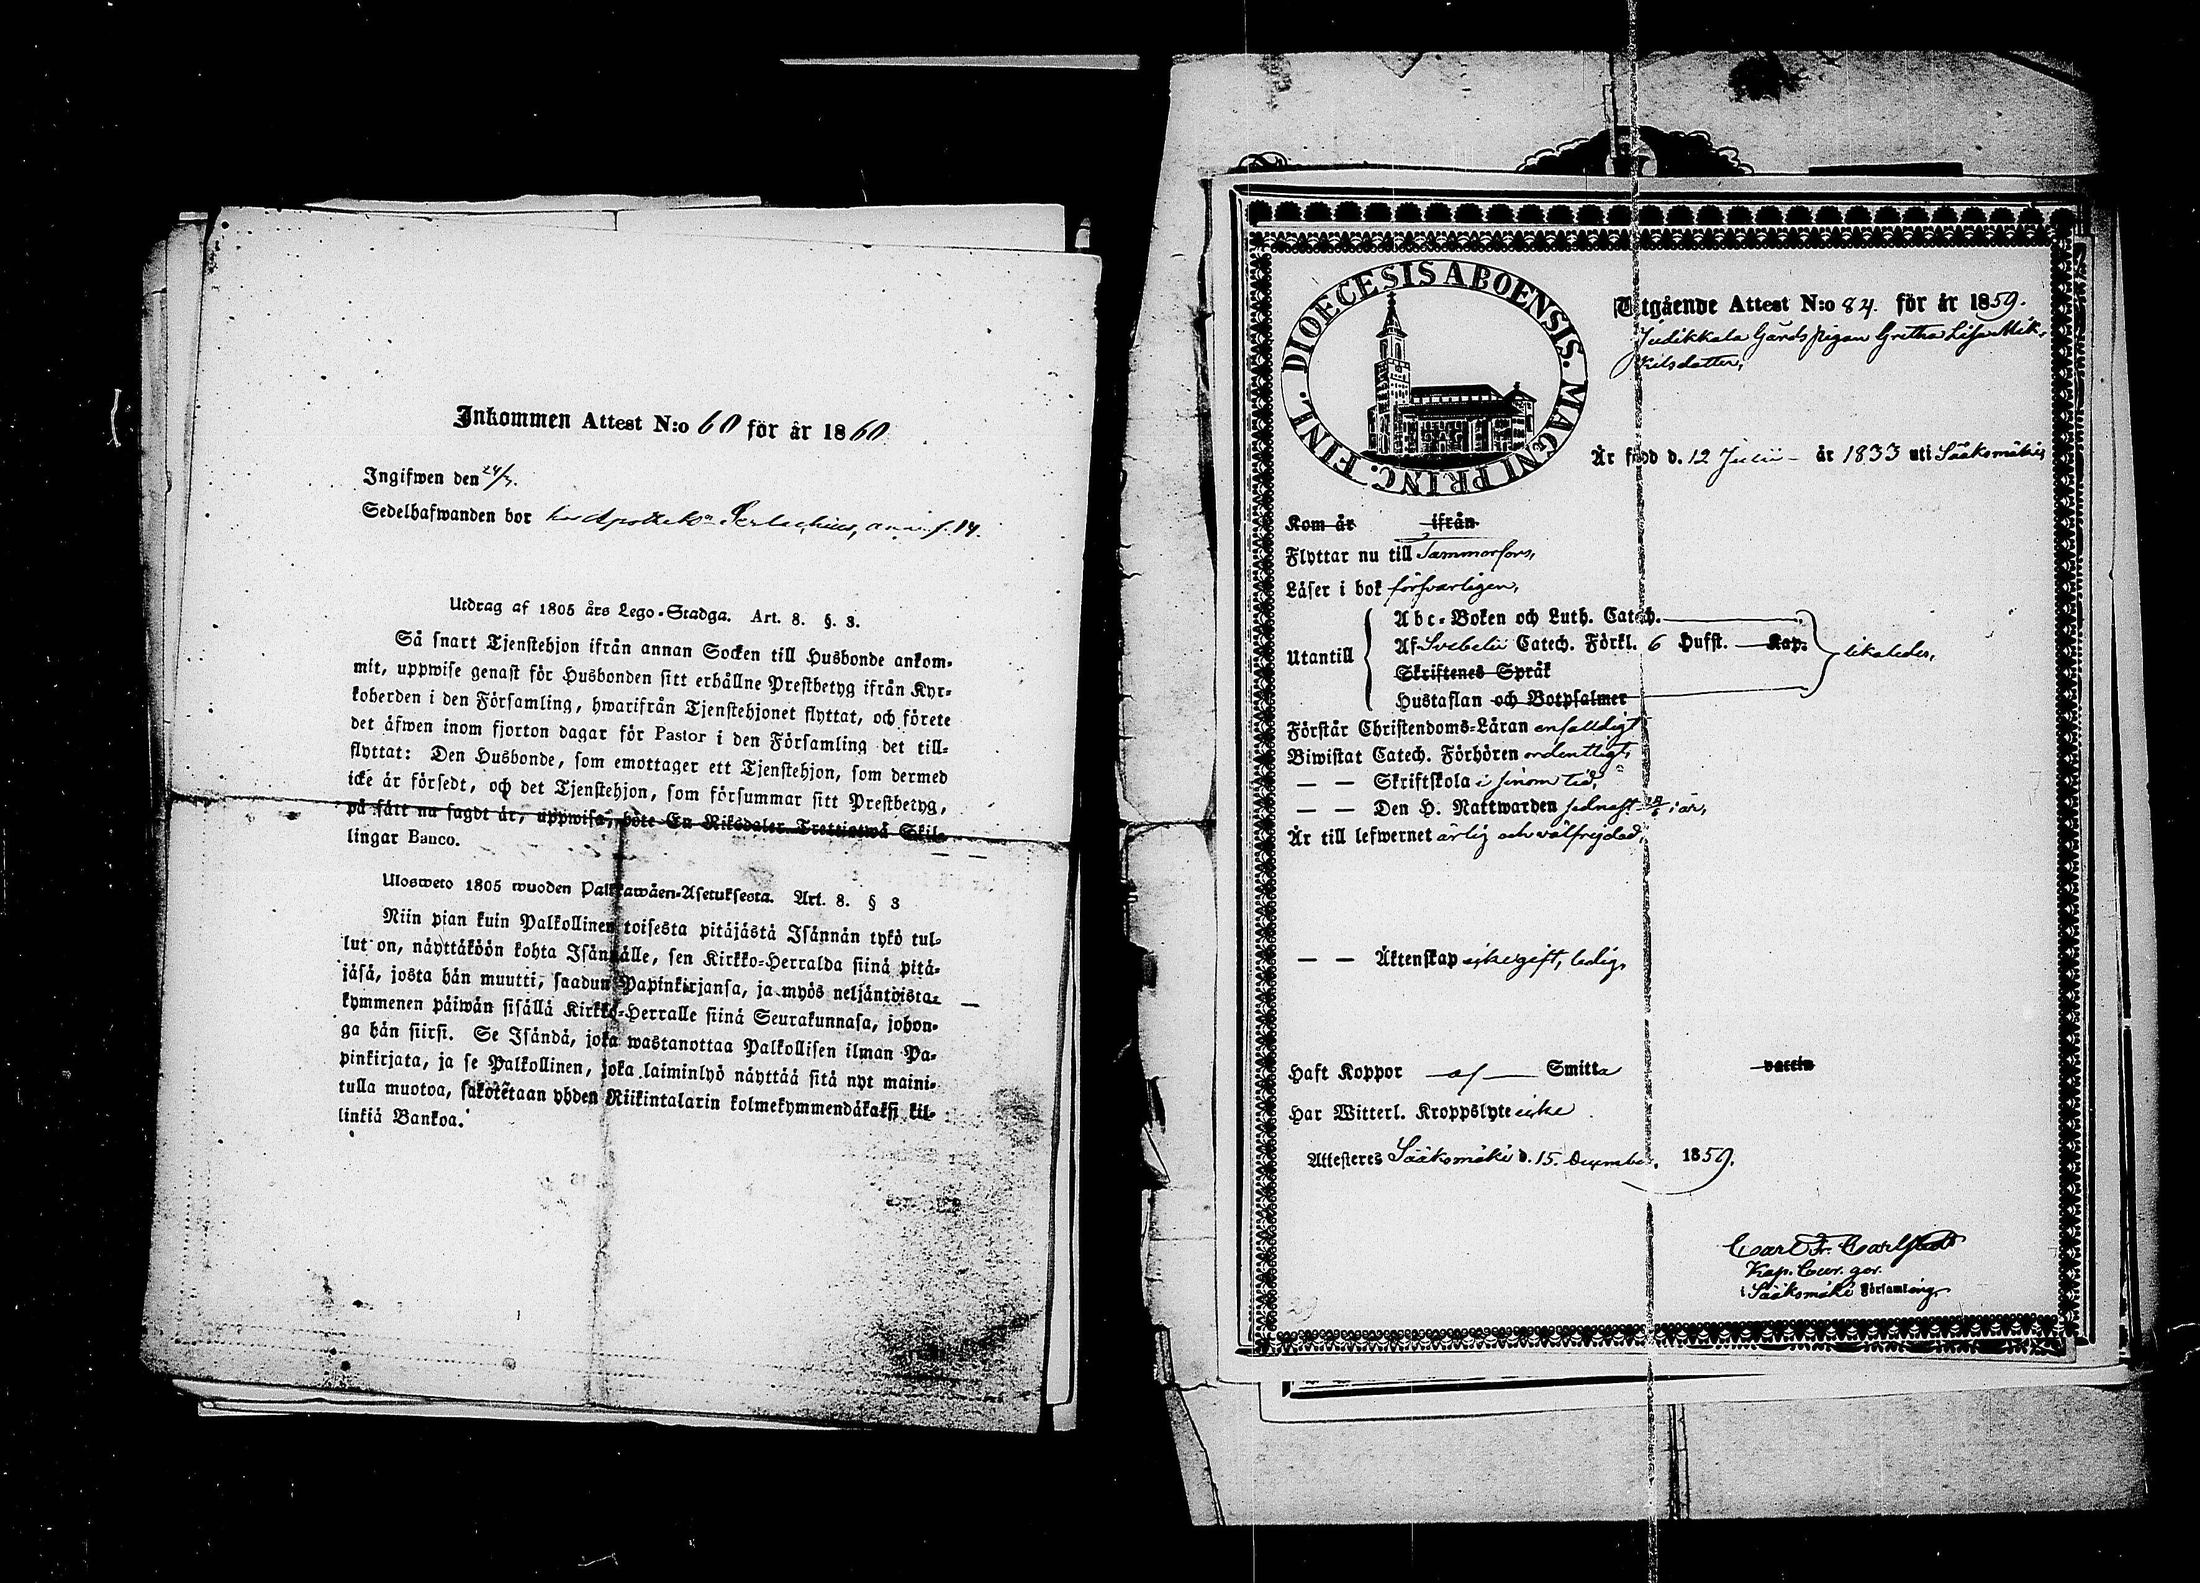 Inkommen Attest N:o 60 för år 1860
Ingifwen den 24/3.
Sedelhafwanden bor hos Apothek
Utdrag af 1805 års Lego-Stadga. Art. 8. §. 3.
Så snart Tjenstehjon ifrån annan Socken till Husbonde ankom-
mit, uppwise genast för Husbonden sitt erhållne Prestbetyg ifrån Kyr-
koherden i den Församling, hwarifrån Tjenstehjonet flyttat, och förete
det äfwen inom fjorton dagar för Pastor i den Församling det till-
flyttat: Den Husbonde, som emottager ett Tjenstehjon, som dermed
icke är försedt, och det Tjenstehjon, som försummar sitt Prestbetyg,
på sätt nu sagdt är, uppwisa, böte En Riksdaler Trettiotwå Skil-
lingar Banco.
Ulosweto 1805 wuoden Palkkawäen-Asetuksesta. Art. 8. § 3
Niin pian kuin Palkollinen toisesta pitäjästä Isännän tykö tul-
lut on, näyttäköön kohta Isännälle, sen Kirkko-Herralda siinä pitä-
jäsä, josta hän muutti, saadun Papinkirjansa, ja myös neljäntoista-
kymmenen päiwän sisällä Kirkko-Herralle siinä Seurakunnasa, johon-
ga hän siirsi. Se Isändä, joka wastanottaa Palkollisen ilman Pa-
pinkirjata, ja se Palkollinen, joka laiminlyö näyttää sitä nyt maini-
tulla muotoa, sakotetaan yhden Riikintalarin kolmekymmendäkaksi kil-
linkiä Bankoa.
DIOECESIS ABOENSIS. MAGNI PRINC. FINL.
Utgående Attest N:o 84. för år 1859.
Judikkala Gårds pigan Gretha Lisa Mik-
kelsdotter,
Är född d. 12 Julii - år 1833 uti Sääksmäki,
Kom år ifrån
Flyttar nu till Tammerfors,
Läser i bok försvarligen,
Utantill
Abc-Boken och Luth. Catech.
Af Svebelii Catech. Förkl. 6 Hufst. Kap. likaledes,
Skriftenes Språk
Hustaflan och Botpsalmer
Förstår Christendoms-Läran enfaldigt
Biwistat Catech. Förhören ordentligt,
— — Skriftskola i sinom tid,
— — Den H. Nattwarden sednast i år,
Är till lefwernet ärlig och välfrejdad,
— — Äktenskap icke gift, ledig,
Haft Koppor af Smitta vaccin
Har Witterl. Kroppslyte icke
Attesteres Sääksmäki d. 15. December. 1859.
Carl Fr. Carlstedt
Kap. Cur. ger.
i Sääksmäki Församling.